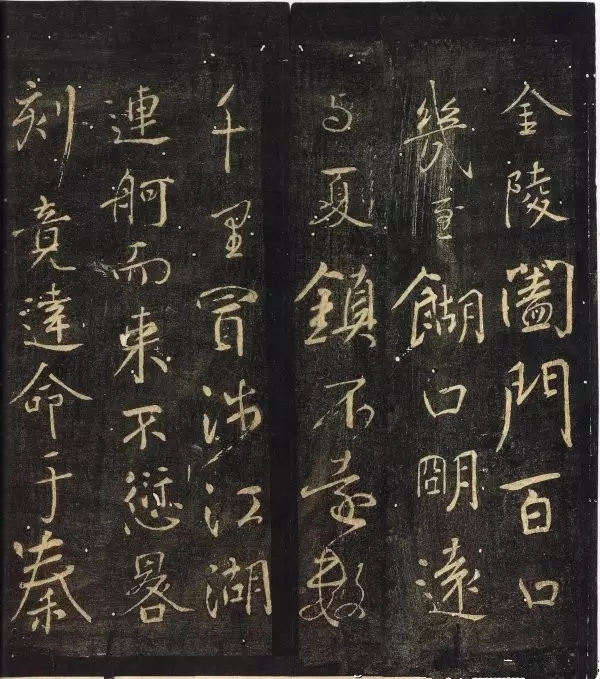 金陵闔門百口
幾至餬口朙遠
与夏鎮不遠數
千里冒涉江湖
連舸而來不愆晷
刻竟達命于秦